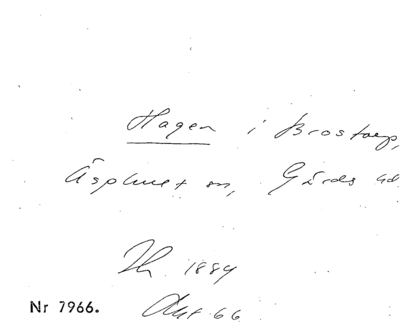 Hagen i Brostorp,
Äsphult sn, Gärds hd
Th 1884
Nr 7966.
Okt 66